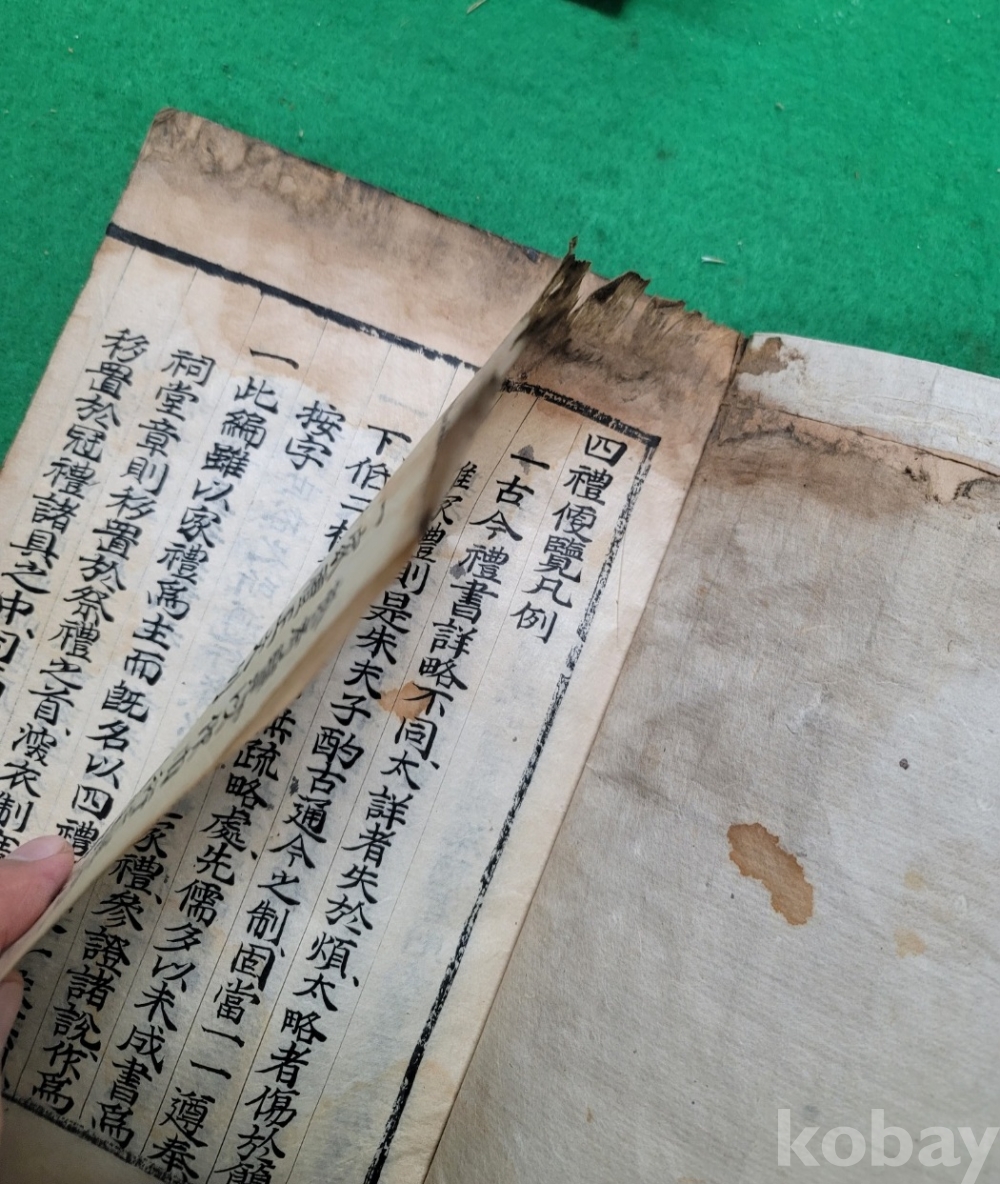 四禮便覽凡例
一古今禮書詳略不同、太詳者失於煩、太略者傷於簡
惟家禮則是朱夫子酌古通今之制、固當一一遵奉
疏略處、先儒多以未成書爲
家禮、參證諸說、作爲
下低二
按字
一此編雖以家禮爲主而旣名以四禮
祠堂章則移置於祭禮之首、深衣制
移置於冠禮諸具之中、同
kobay